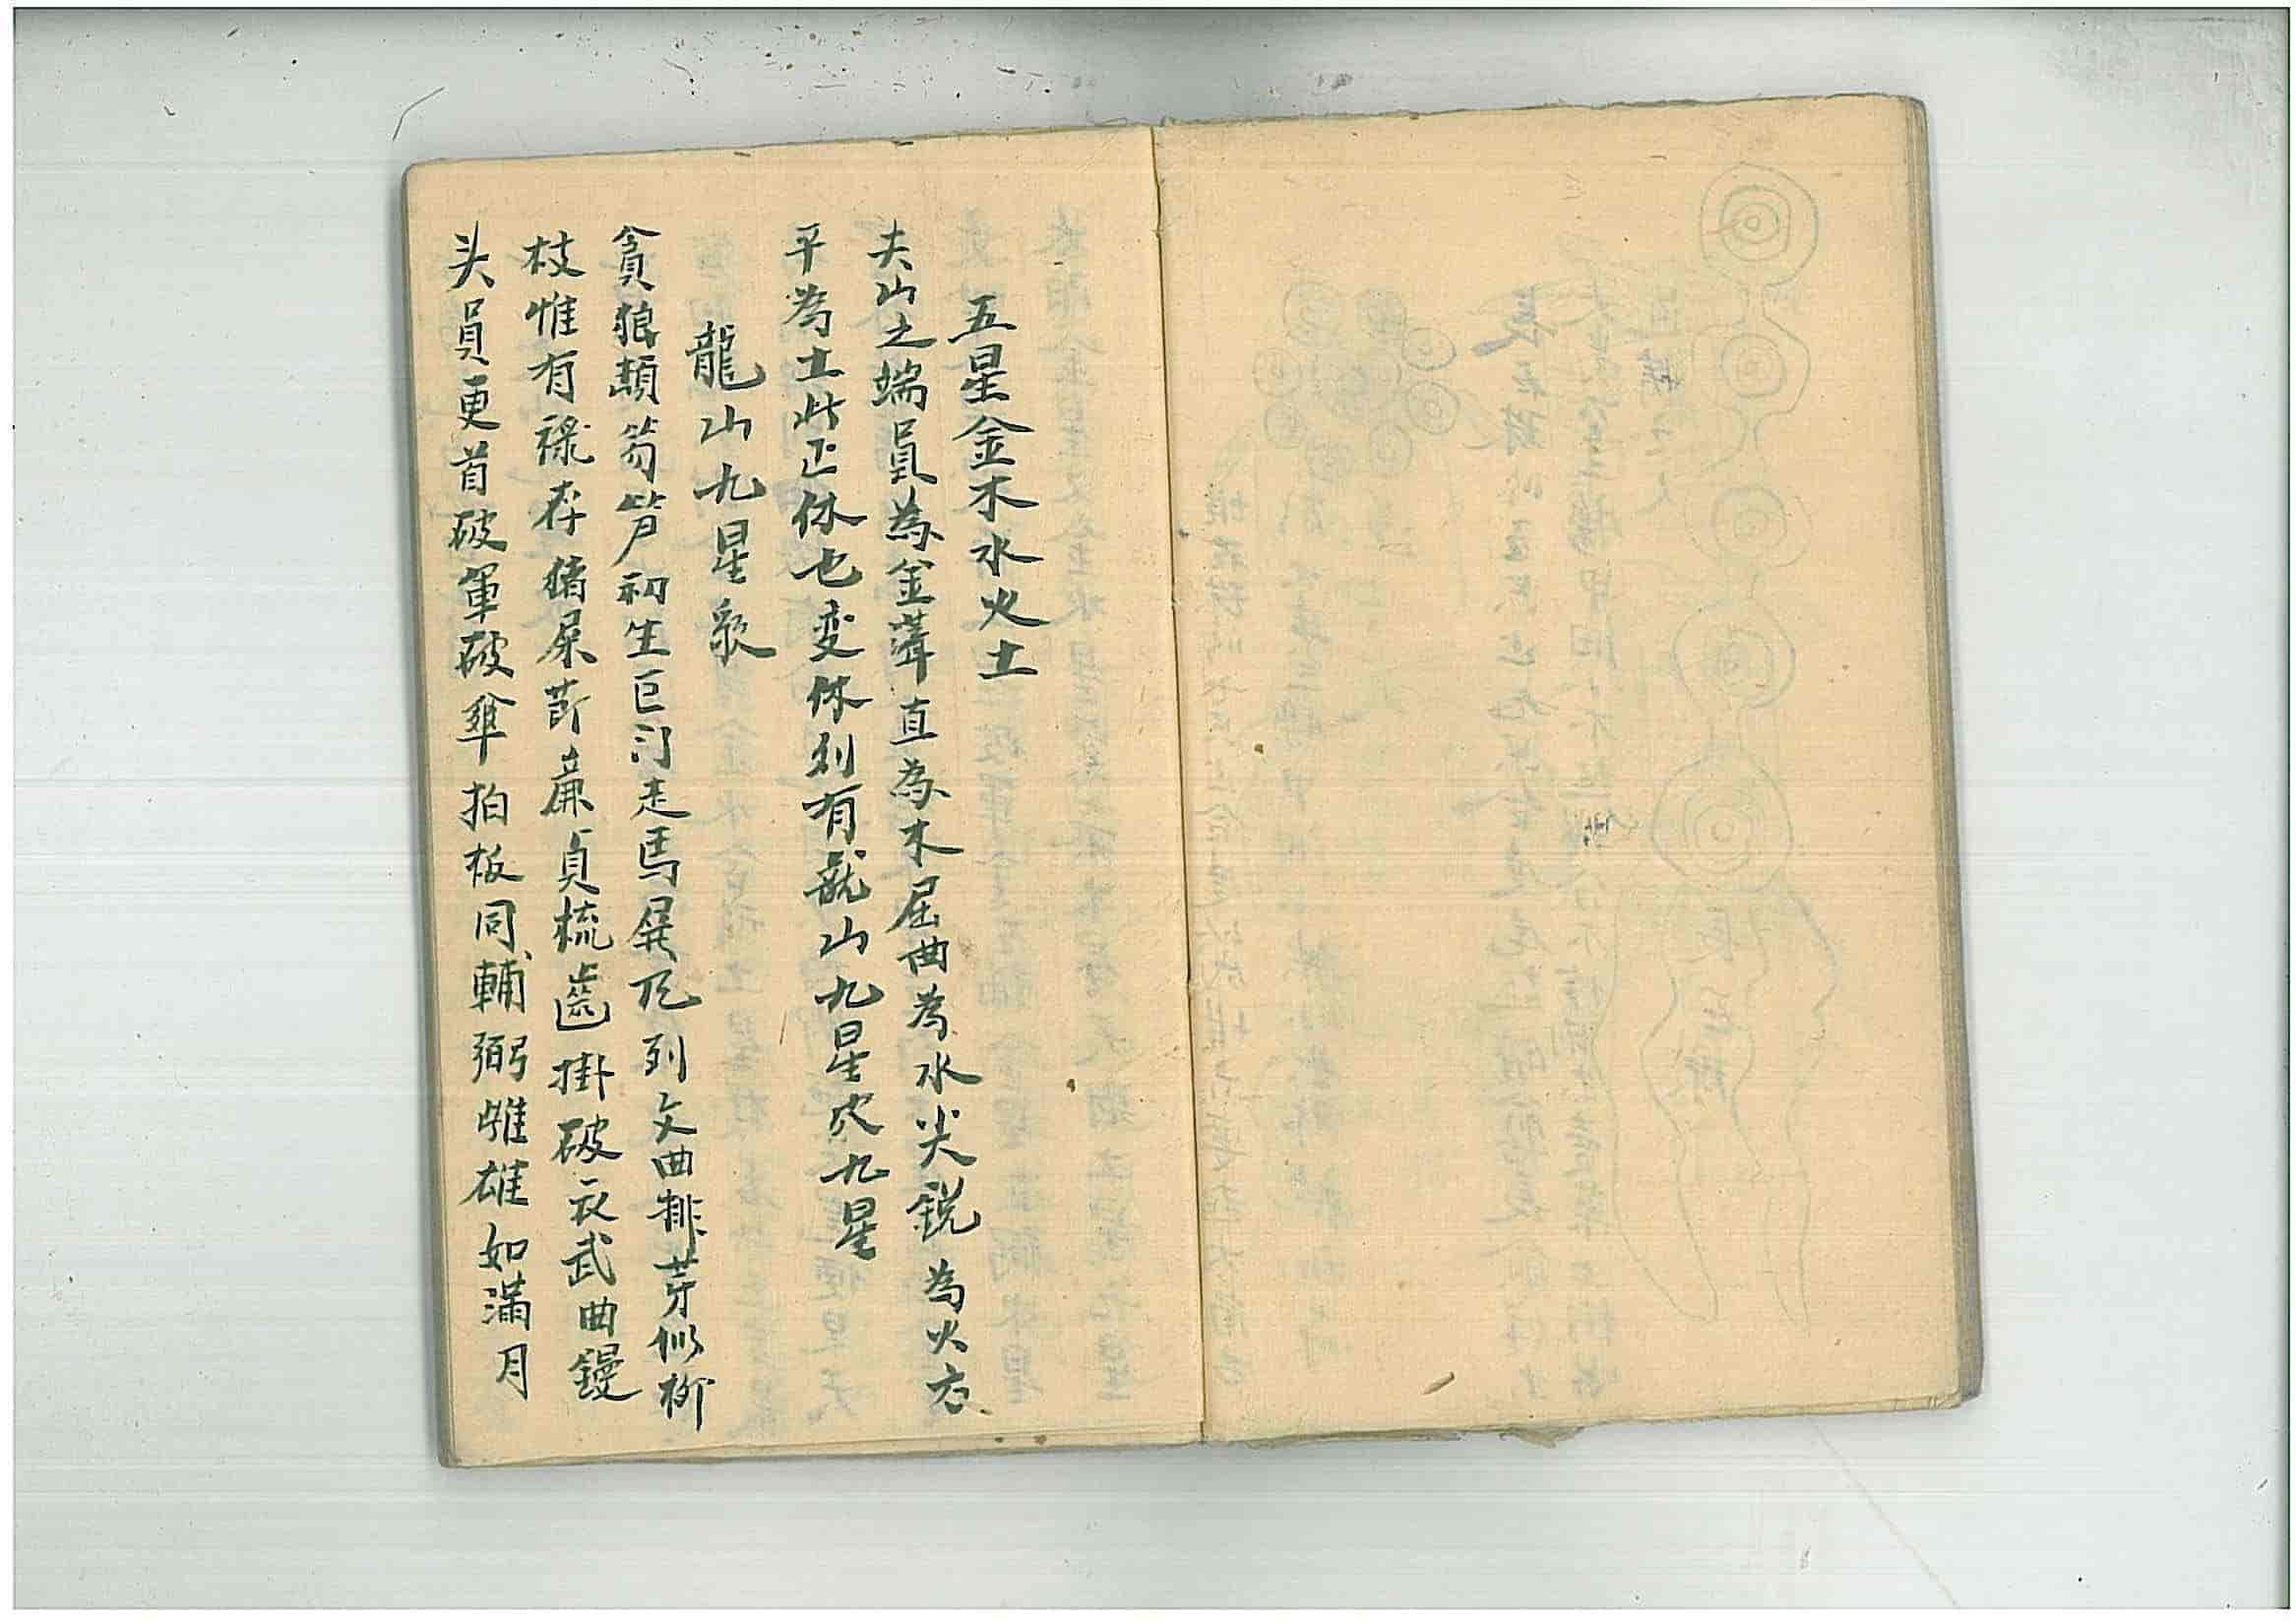 五星金木水火土
夫山之端員為金聳直為木屈曲為水尖銳為火方
平為土此正体也变体则有龍山九星穴九星
龍山九星歌
貪狼頓笏笋初生巨门走馬屏风列文曲排芽似柳
枝惟有祿存猪屎節廉貞梳齒掛破衣武曲饅
头員更首破軍破傘拍板同輔弼惟雄如滿月